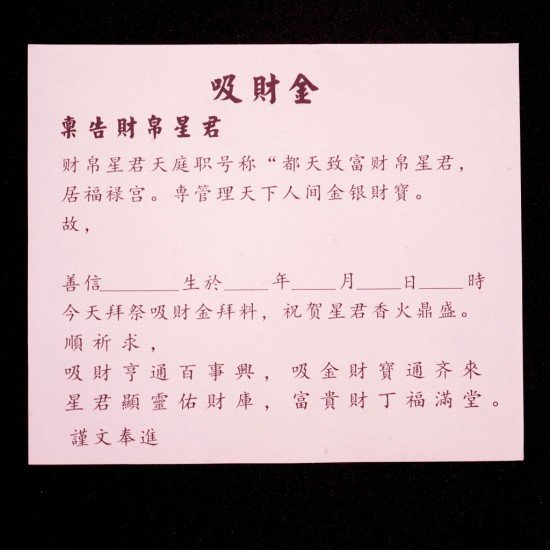 吸財金
稟告財帛星君
财帛星君天庭职号称“都天致富财帛星君，
居福禄宫。専管理天下人间金银財寶。
故，
善信________生於____年____月____日____時
今天拜祭吸財金拜料，祝贺星君香火鼎盛。
順祈求，
吸財亨通百事興，吸金財寶通齐來
星君顯靈佑財庫，富貴財丁福滿堂。
謹文奉進